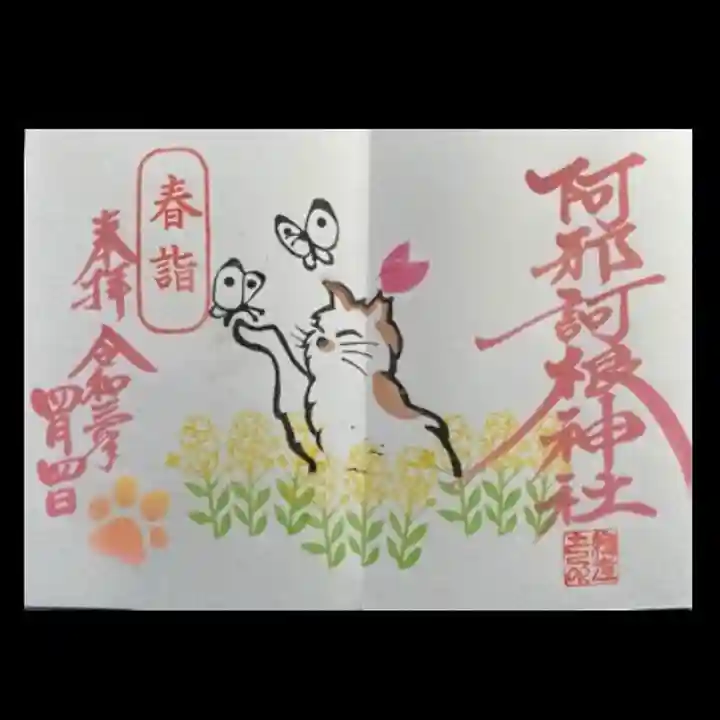 阿邪訶根神社
春詣
奉拝
令和三年
四月四日